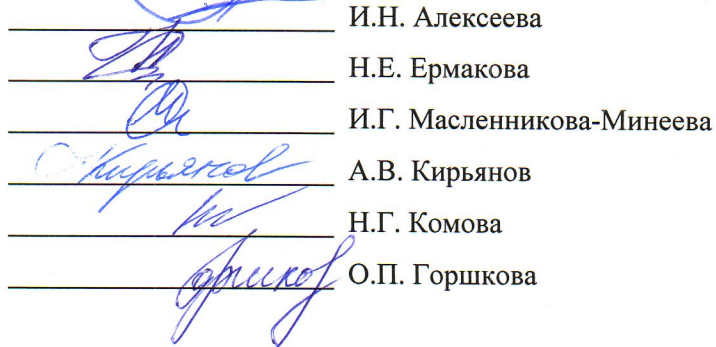 И.Н. Алексеева
Н.Е. Ермакова
И.Г. Масленникова-Минеева
Кирьянов А.В. Кирьянов
Н.Г. Комова
О.П. Горшкова